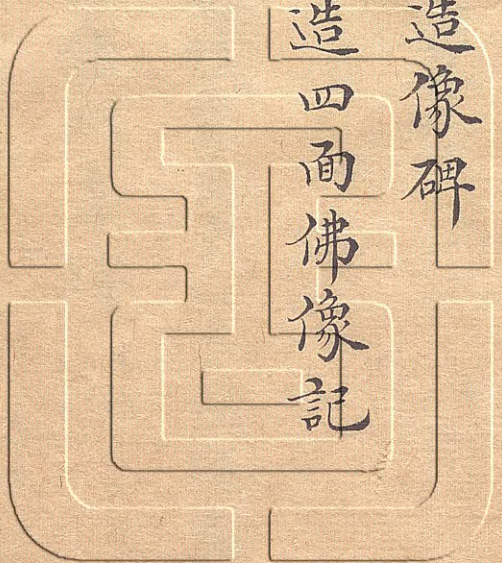 造像碑
造四面佛像記